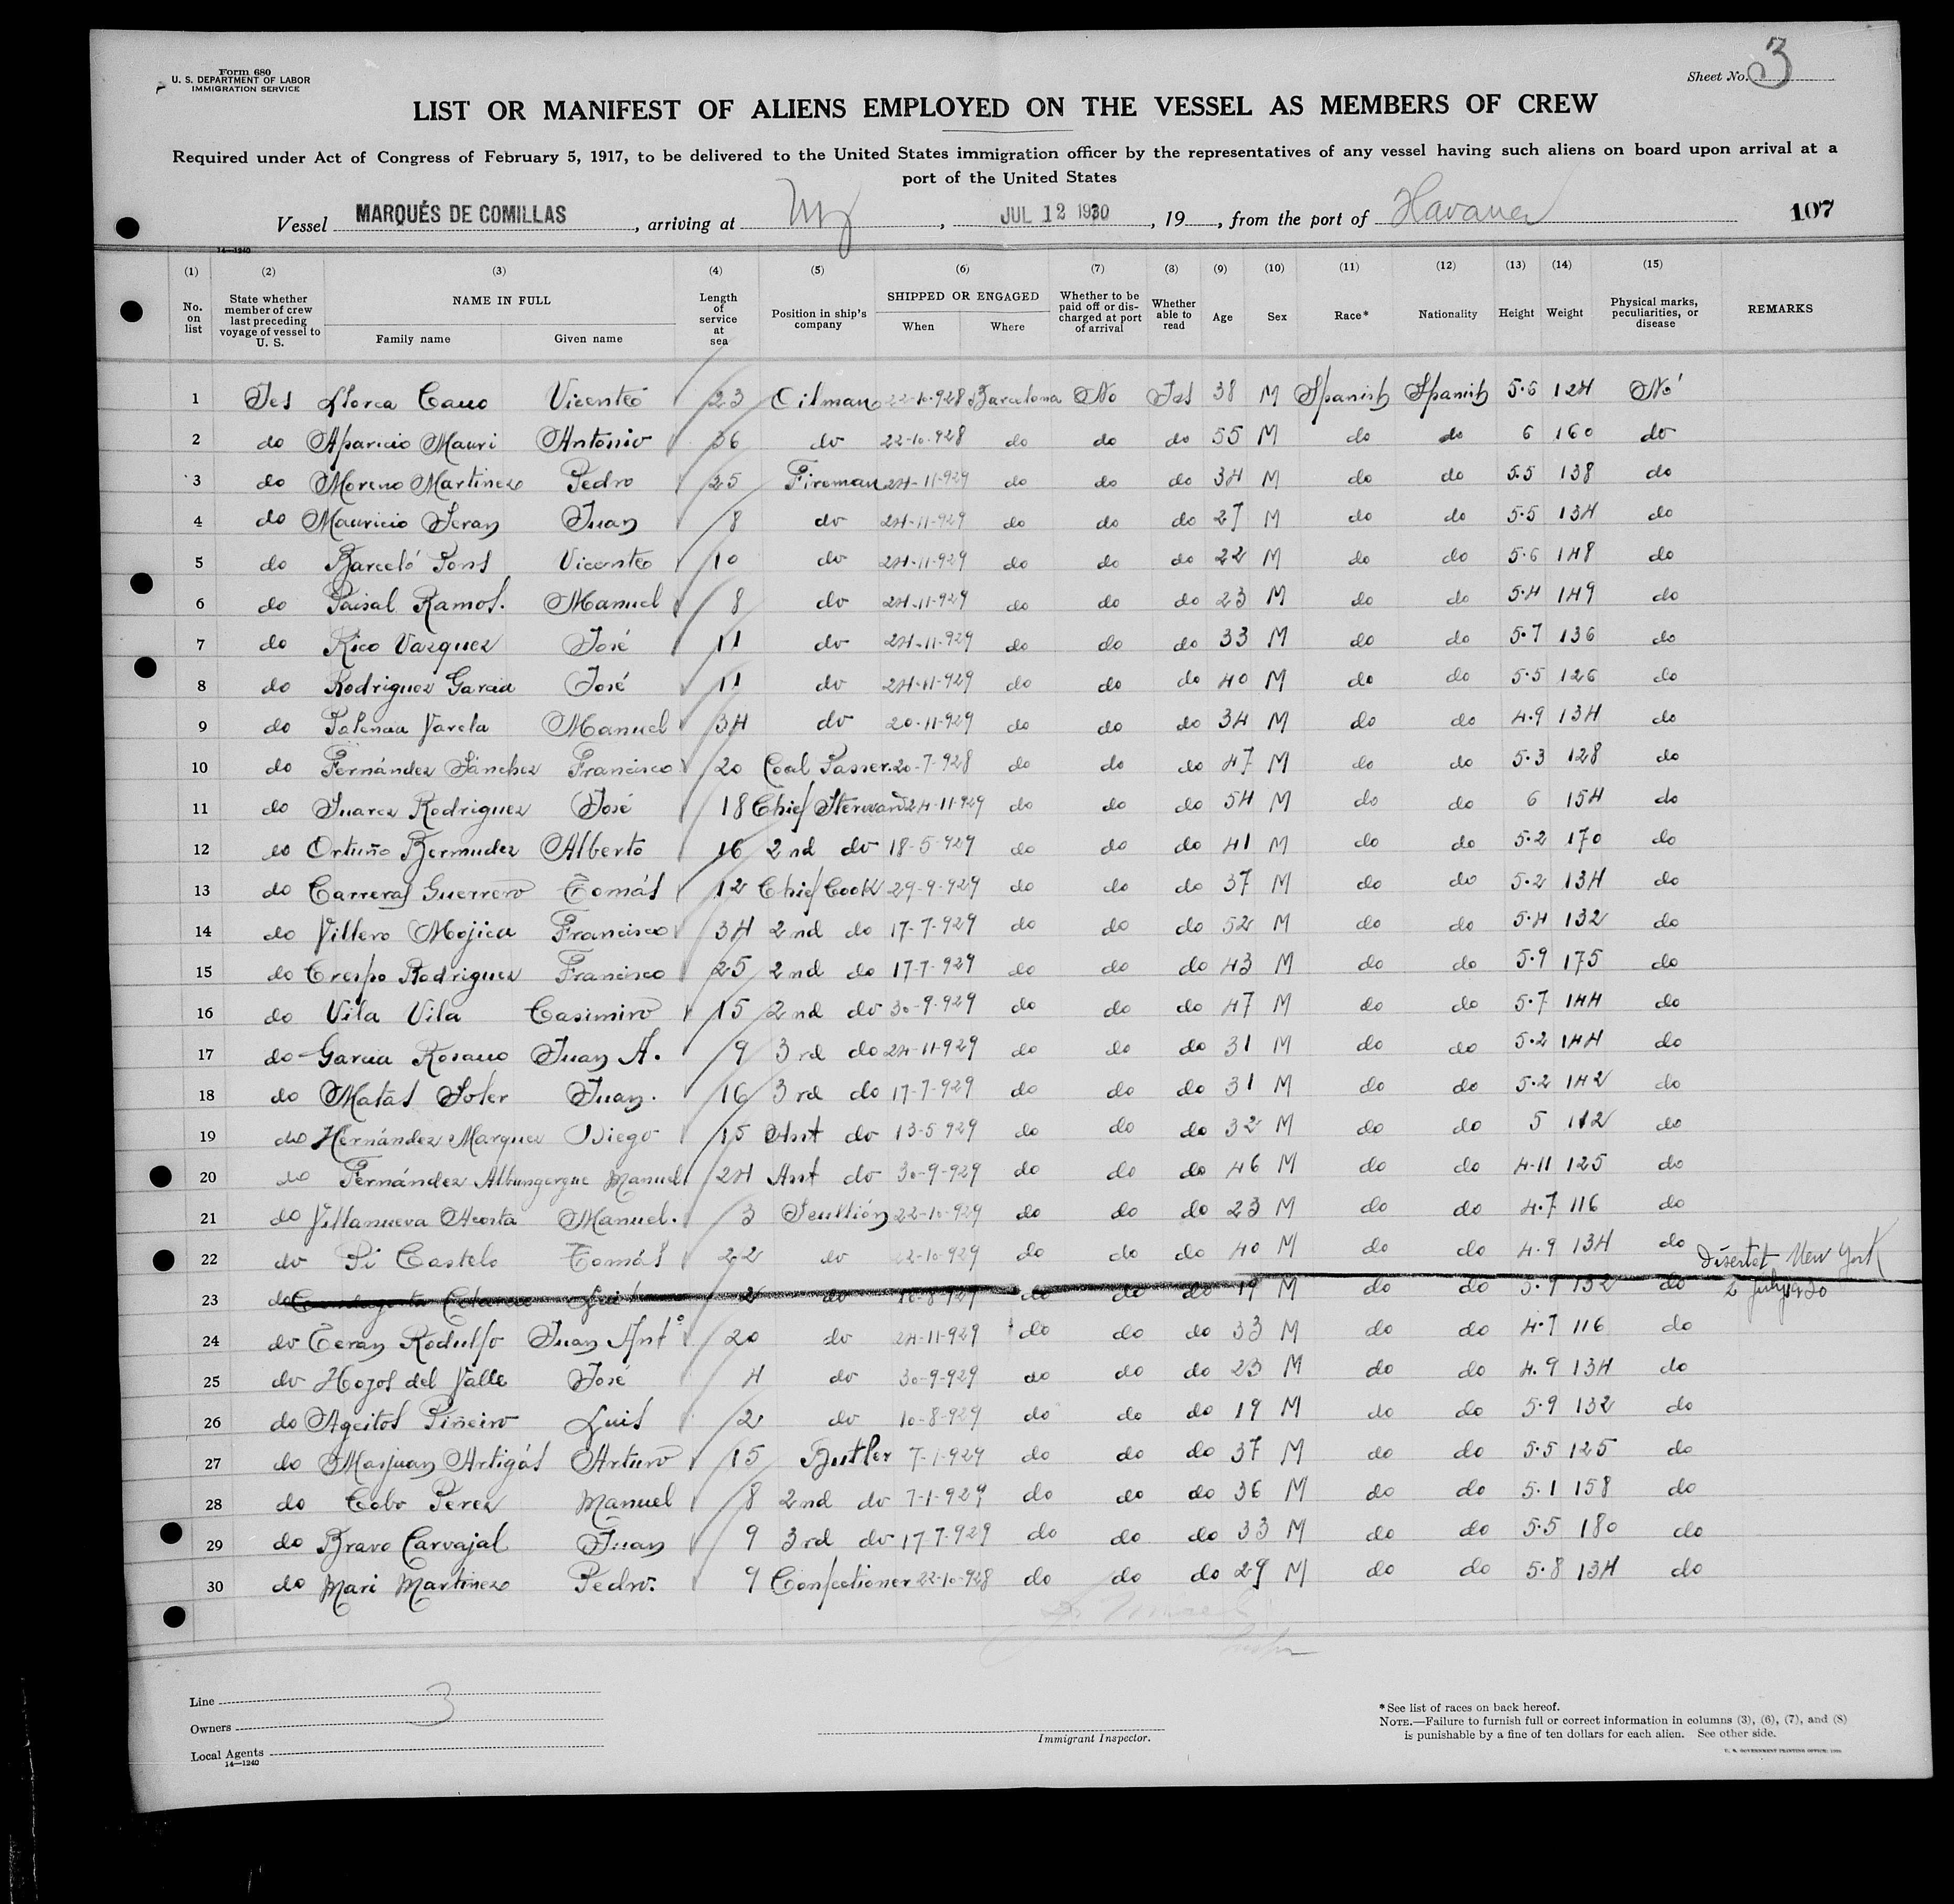 Form 680
U. S. DEPARTMENT OF LABOR
IMMIGRATION SERVICE
Sheet No. 3
LIST OR MANIFEST OF ALIENS EMPLOYED ON THE VESSEL AS MEMBERS OF CREW
Required under Act of Congress of February 5, 1917, to be delivered to the United States immigration officer by the representatives of any vessel having such aliens on board upon arrival at a
port of the United States
Vessel MARQUÉS DE COMILLAS, arriving at NY, JUL 12 1930, 19, from the port of Havana 107
14—1240
(1) (2) (3) (4) (5) (6) (7) (8) (9) (10) (11) (12) (13) (14) (15)
No. on list State whether member of crew last preceding voyage of vessel to U. S. NAME IN FULL Family name Given name Length of service at sea Position in ship's company SHIPPED OR ENGAGED When Where Whether to be paid off or discharged at port of arrival Whether able to read Age Sex Race* Nationality Height Weight Physical marks, peculiarities, or disease REMARKS
1 Yes Llorca Cano Vicente 23 Oilman 22-10-928 Barcelona No Yes 38 M Spanish Spanish 5·6 124 No
2 do Aparicio Mauri Antonio 36 do 22-10-928 do do do 55 M do do 6 160 do
3 do Moreno Martinez Pedro 25 Fireman 24-11-929 do do do 34 M do do 5.5 138 do
4 do Mauricio Juan 8 do 24-11-929 do do do 27 M do do 5·5 134 do
5 do Barceló Pons Vicente 10 do 24-11-929 do do do 22 M do do 5·6 148 do
6 do Paisal Ramos. Manuel 8 do 24-11-929 do do do 23 M do do 5·4 149 do
7 do Rico Vazquez José 11 do 24-11-929 do do do 33 M do do 5·7 136 do
8 do Rodriguez Garcia José 11 do 24-11-929 do do do 40 M do do 5·5 126 do
9 do Varela Manuel 34 do 20-11-929 do do do 34 M do do 4·9 134 do
10 do Fernández Sánchez Francisco 20 Coal Passer 20-7-928 do do do 47 M do do 5·3 128 do
11 do Juarez Rodriguez José 18 Chief Steward 24-11-929 do do do 54 M do do 6 154 do
12 do Ortuño Bermudez Alberto 16 2nd do 18-5-929 do do do 41 M do do 5·2 170 do
13 do Carreras Guerrero Tomás 12 Chief Cook 29-9-929 do do do 37 M do do 5·2 134 do
14 do Villero Mojica Francisco 34 2nd do 17-7-929 do do do 52 M do do 5·4 132 do
15 do Crespo Rodriguez Francisco 25 2nd do 17-7-929 do do do 43 M do do 5·9 175 do
16 do Vila Vila Casimiro 15 2nd do 30-9-929 do do do 47 M do do 5·7 144 do
17 do Garcia Rosano Juan A. 9 3rd do 24-11-929 do do do 31 M do do 5·2 144 do
18 do Matas Soler Juan. 16 3rd do 17-7-929 do do do 31 M do do 5·2 142 do
19 do Hernández Marquez Diego 15 Ant do 13-5 929 do do do 32 M do do 5 112 do
20 do Fernández Alburquerque Manuel 24 Ant do 30-9-929 do do do 46 M do do 4-11 125 do
21 do Villanueva Acosta Manuel. 3 Scullión 22-10-929 do do do 23 M do do 4·7 116 do
22 do Pi Castelo Tomás 22 do 22-10-929 do do do 40 M do do 4·9 134 do Disertet New York
23 do 2 do 10-8-929 do do do 19 M do do 5·9 132 do 2 July 1930
24 do Teran Rodulfo Juan Antº 20 do 24-11-929 do do do 33 M do do 4·7 116 do
25 do Hoyos del Valle José 4 do 30-9-929 do do do 23 M do do 4·9 134 do
26 do Ageitos Piñeiro Luis 2 do 10-8-929 do do do 19 M do do 5·9 132 do
27 do Masjuan Artigás Arturo 15 Butler 7-1-929 do do do 37 M do do 5·5 125 do
28 do Cobo Perez Manuel 8 2nd do 7-1-929 do do do 36 M do do 5·1 158 do
29 do Bravo Carvajal Juan 9 3rd do 17-7-929 do do do 33 M do do 5·5 180 do
30 do Mari Martinez Pedro. 9 Confectioner 22-10-928 do do do 29 M do do 5·8 134 do
Line
Owners 3
Local Agents
14—1240
Immigrant Inspector.
*See list of races on back hereof.
NOTE.—Failure to furnish full or correct information in columns (3), (6), (7), and (8)
is punishable by a fine of ten dollars for each alien. See other side.